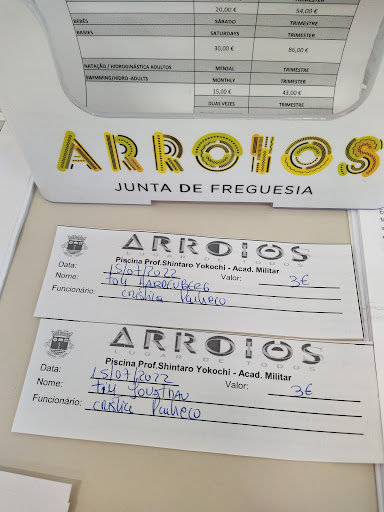 20,00 € 54,00 €
BEBÉS SÁBADO TRIMESTRE
BABIES SATURDAYS TRIMESTER
30,00 € 86,00 €
NATAÇÃO / HIDROGINÁSTICA ADULTOS MENSAL TRIMESTRE
SWIMMING/HIDRO-ADULTS MONTHLY TRIMESTER
15,00 € 43,00 €
DUAS VEZES TRIMESTRE
ARROIOS
JUNTA DE FREGUESIA
ARROIOS
LUGAR DE TODOS
Piscina Prof.Shintaro Yokochi - Acad. Militar
Data: 15/07/2022 Valor: 3€
Nome: Tom HARDENBERG
Funcionário: Cristina Pacheco
ARROIOS
LUGAR DE TODOS
Piscina Prof.Shintaro Yokochi - Acad. Militar
Data: 15/07/2022 Valor: 3€
Nome: Tim
Funcionário: Cristina Pacheco